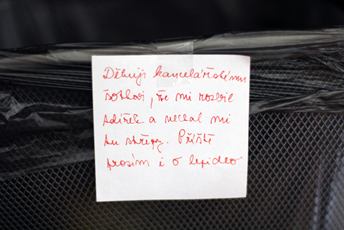 Děkuji kancelářskému
šotkovi, že mi rozbil
talířek a nechal mi
tu střepy. Příště
prosím i o lepidlo